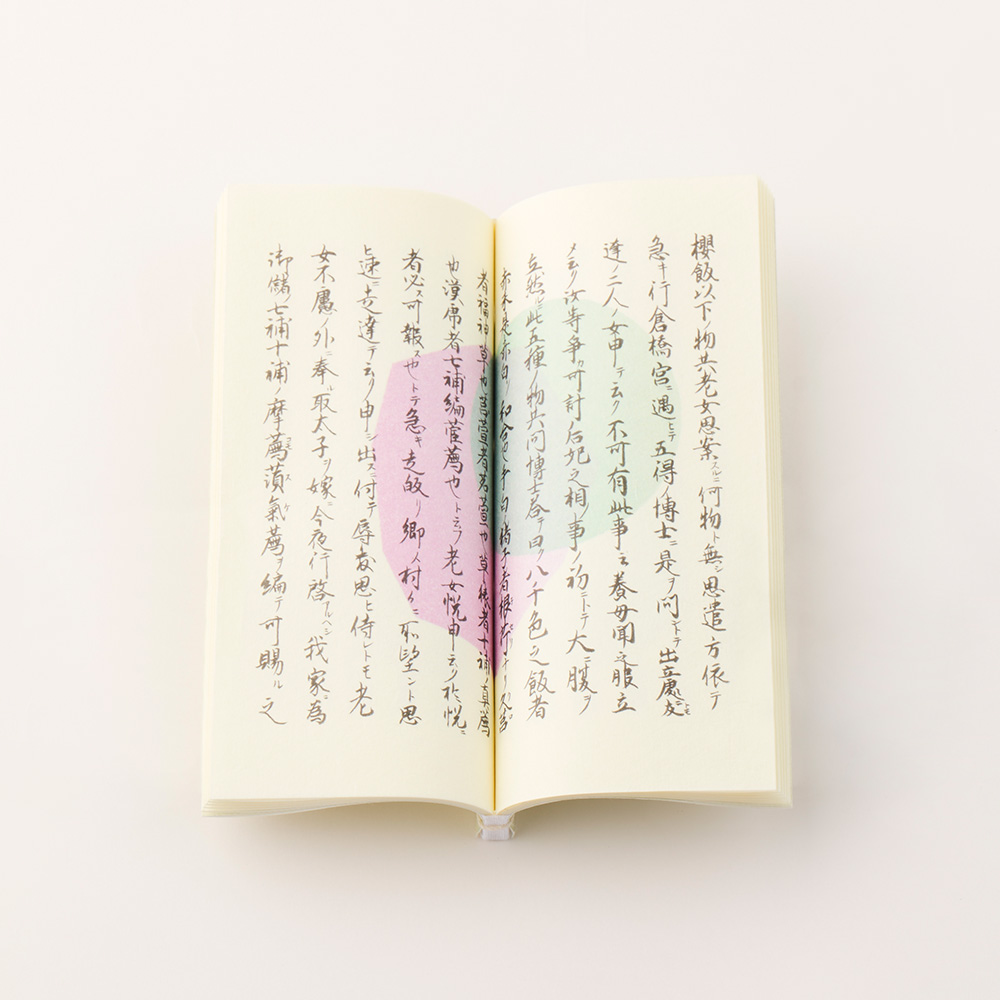 櫻飯以下ノ物共老女思案スルニ何物ト無シ思遣方依テ
急キ行倉橋宮ニ遇ヒテ五得ノ博士ニ是ヲ問ントテ出立處友トモ
逢ノ二人ノ女申テ云ク不可有此事云養母聞之腹立
メ云リ汝等争カ可計后妃之相事ノ初ニトテ大ニ腹ヲ
立然此五種ノ物共問博士答テ曰ク八千色之飯者
赤木是亦白リ和合
者福神草也莒萱者茗萱也草
也漢席者七補編菅薦也ト云フ老女悦申云ク於悦ニ
者必ス可報ス也トテ急キ走皈リ郷人村々ニ不望ント思
ヒ速ニ走達テ云リ申シ出スニ付テ辱家思ヒ侍レトモ老
女不慮ノ外ニ奉ル取太子ヲ嫁ニ今夜行啓アルヘシ我家ニ為
御儲ノ七補十補ノ摩薦蒲氣薦ヲ編テ可賜ル之